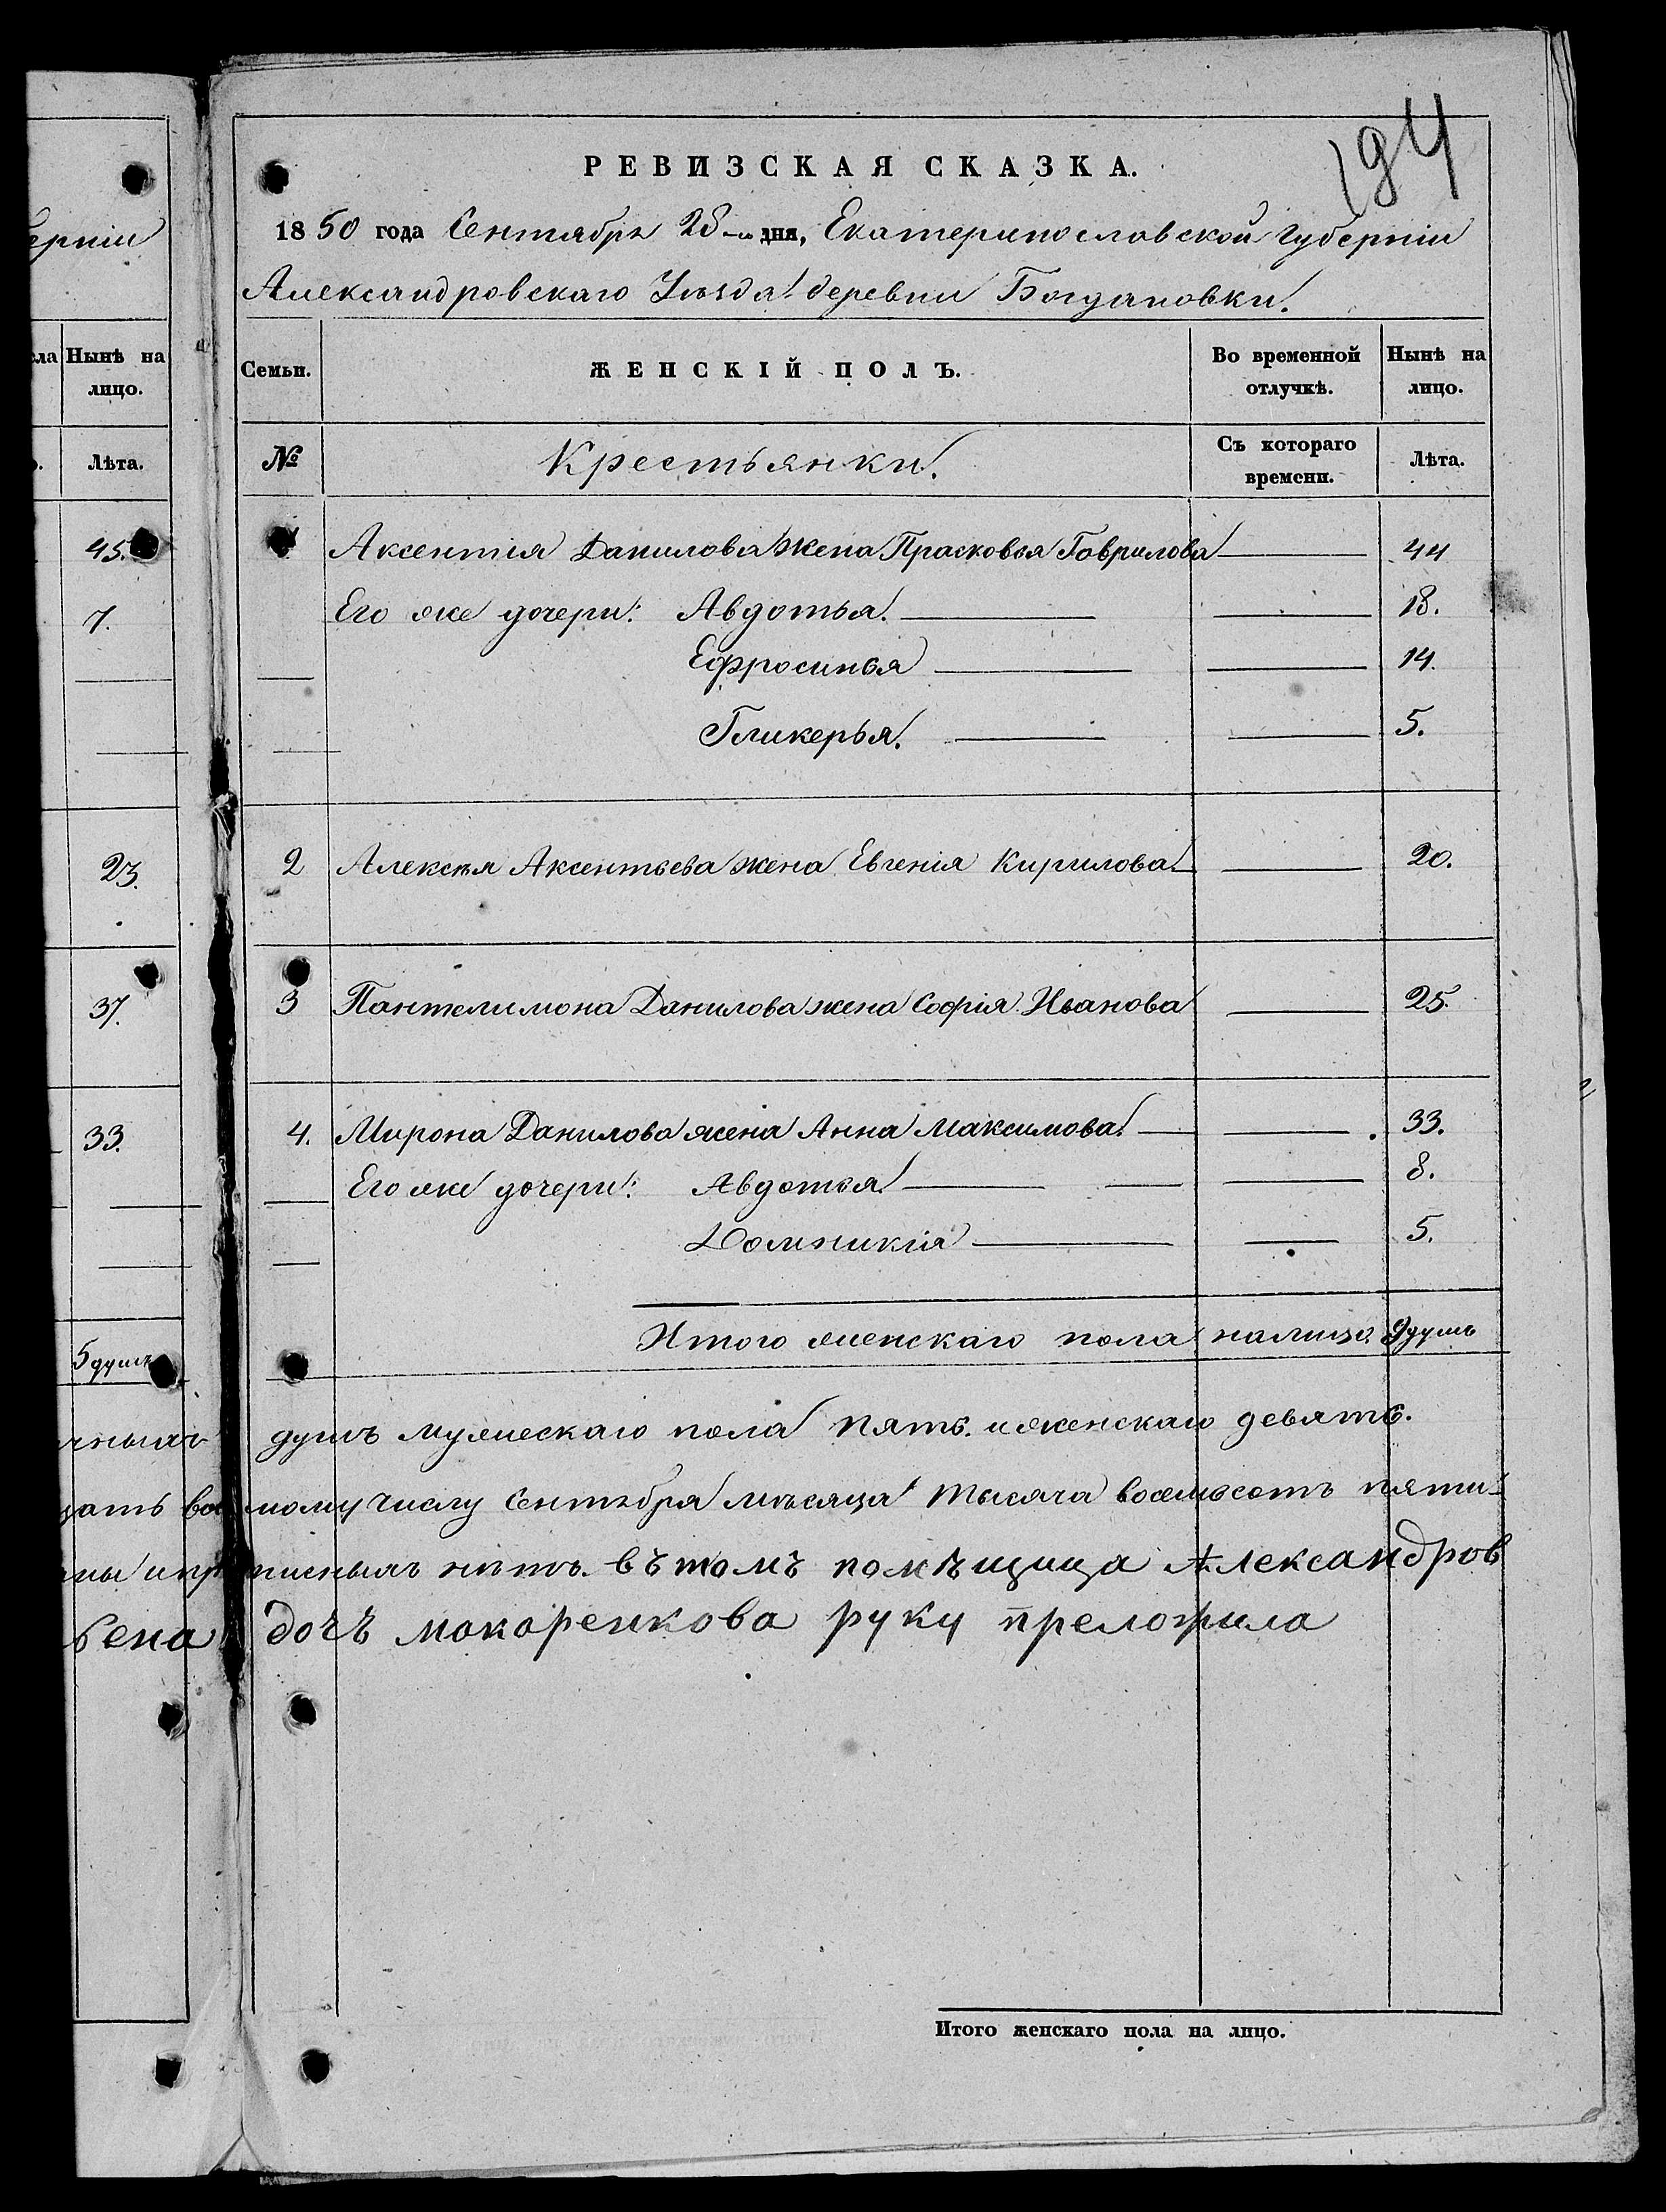 194
РЕВИЗСКАЯ СКАЗКА.
1850 года Сентября 28-го дня, Екатеринославской губерніи
Александровскаго Уѣзда деревни Богдановки.
Семьи. ЖЕНСКІЙ ПОЛЪ. Во временной отлучкѣ. Нынѣ на лицо.
№ Крестьянки. Съ котораго времени. Лѣта.
1 Аксентія Данилова жена Прасковья Гаврилова 44
Его же дочери: Авдотья. 18.
Ефросинья 14.
Гликерья. 5.
2 Алексѣя Аксентьева жена Евгенія Кирилова 20.
3 Пантелимона Данилова жена Софія Иванова 25.
4. Мирона Данилова жена Анна Максимова. 33.
Его же дочери: Авдотья 8.
Домникія 5.
Итого женскаго пола налицо. 9 душъ
душъ мужескаго пола пять. и женскаго девять.
мому числу Сентября мѣсяца тысяча восемьсотъ пяти-
писныхъ нѣтъ. въ томъ помѣщица Александров
дочъ макоренкова руку преложила
Итого женскаго пола на лицо.
ерніи
Нынѣ на
лицо.
Лѣта.
45.
7.
23.
37.
33.
5 душъ